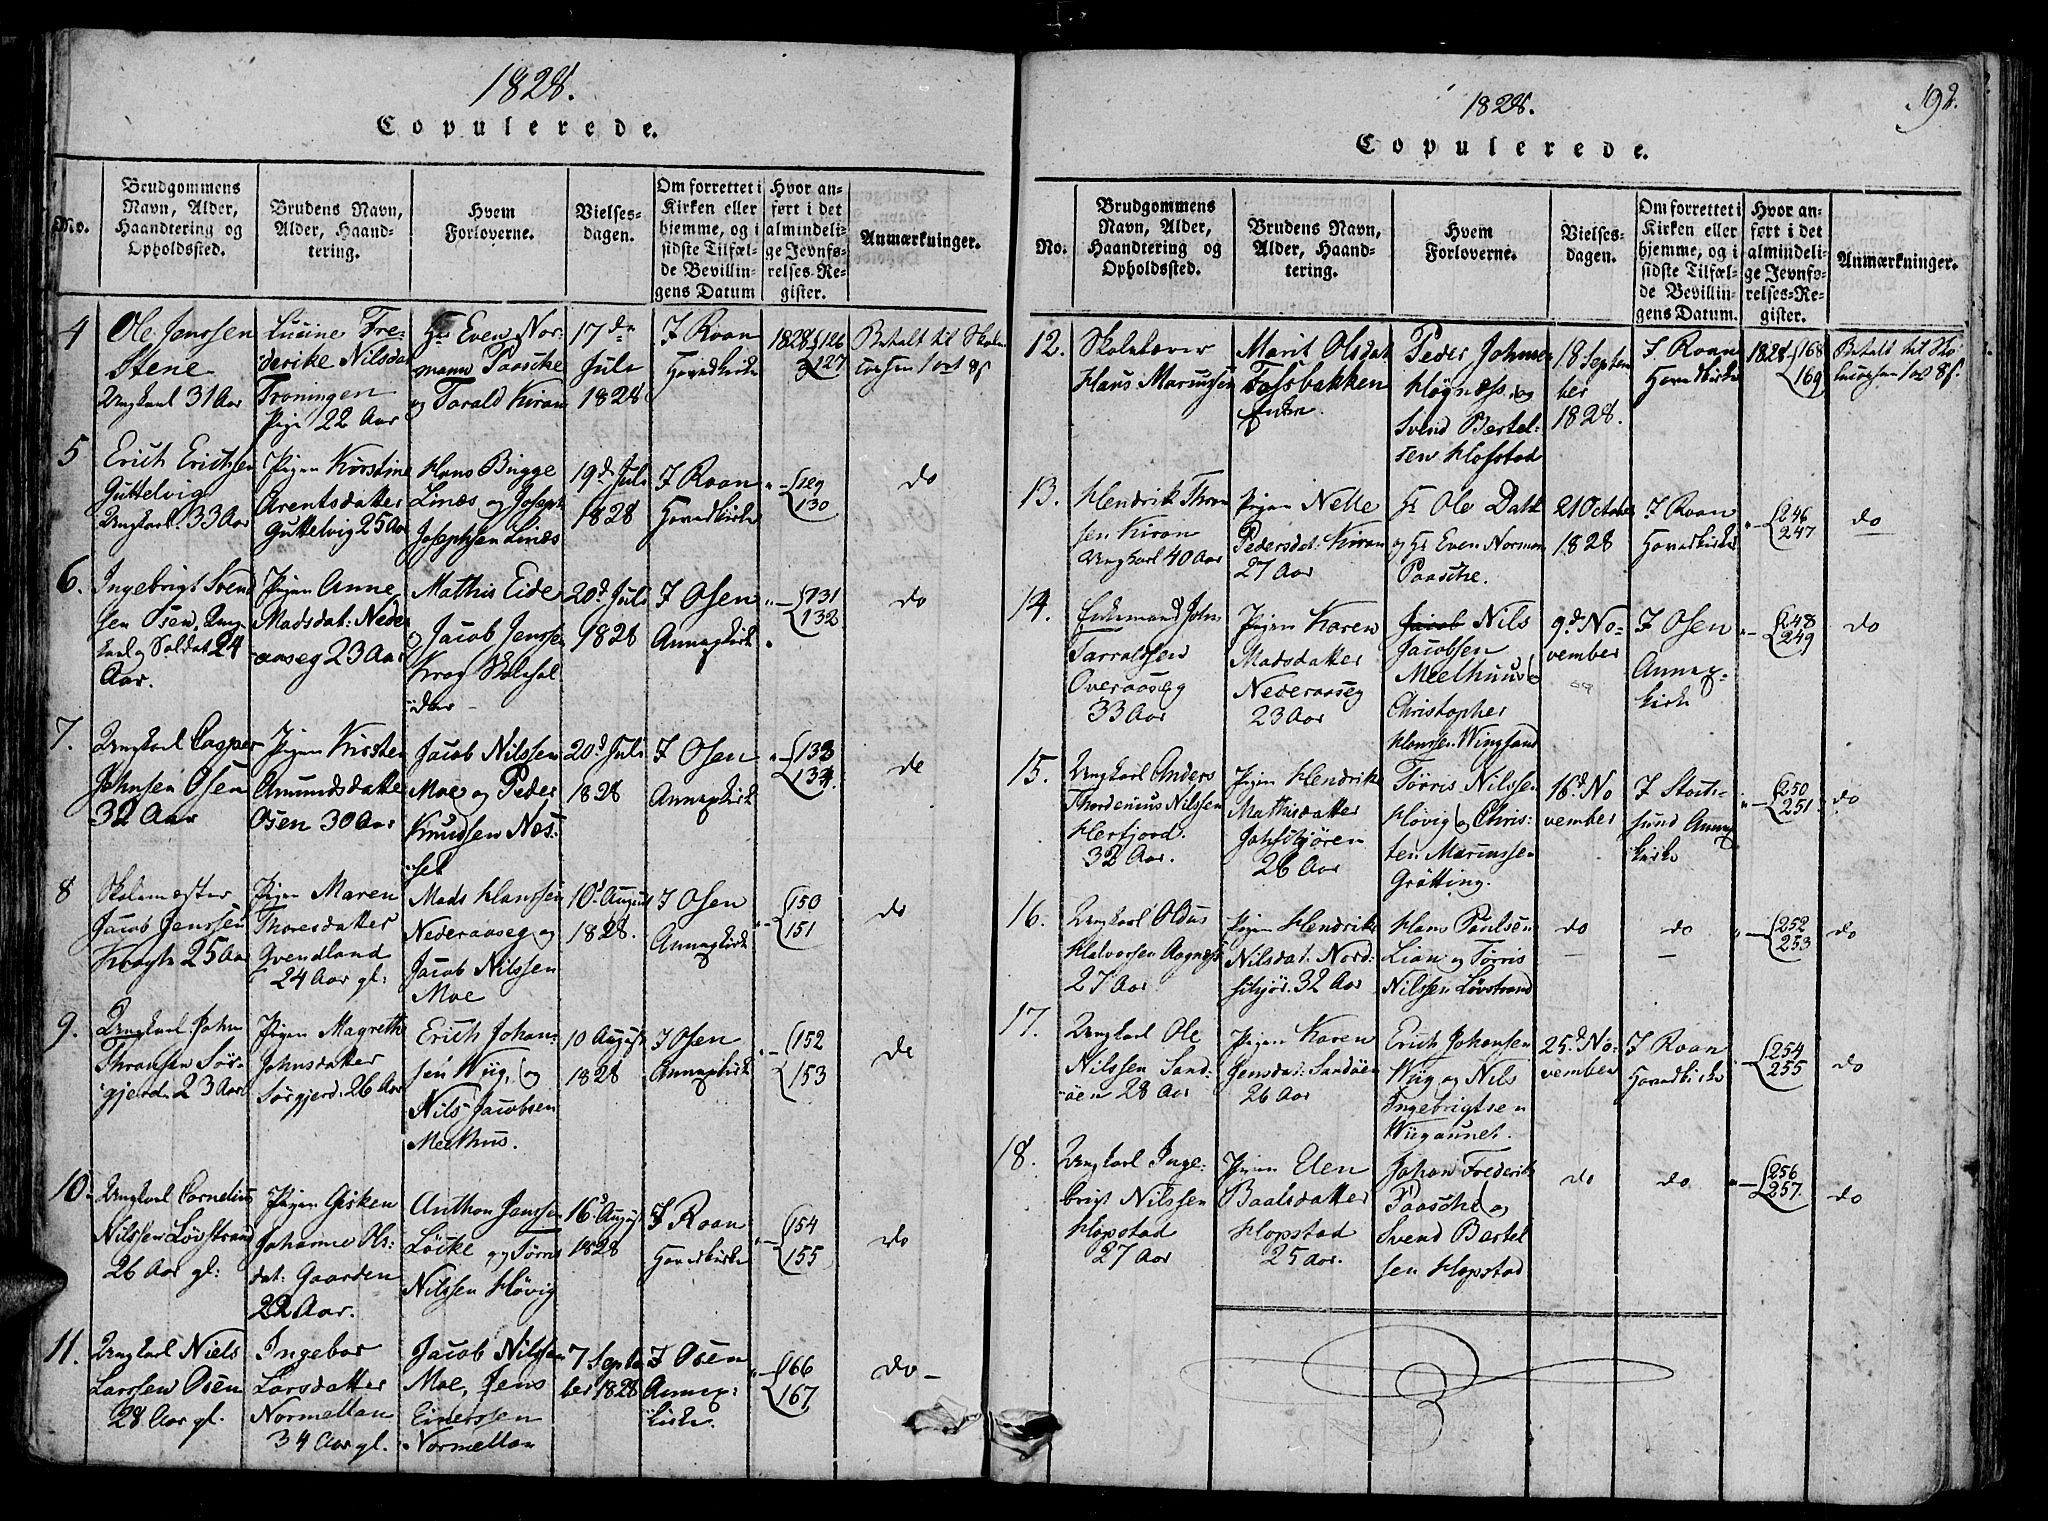 1828.
Copulerede.
No.
Brudgommens
Navn, Alder,
Haandtering og
Opholdssted.
Brudens Navn,
Alder, Haand-
tering.
Hvem
Forloverne.
Vielses-
dagen.
Om forrettet i
Kirken eller
hjemme, og i
sidste Tilfæl-
de Bevillin-
gens Datum
Hvor an-
ført i det
almindeli-
ge Jevnfø-
relses-Re-
gister.
Anmærkninger.
4
Ole Jenssen
Stene
Ungkarl 31 Aar
Lucine Fre-
derike Nilsdat
Froningen
Pige 22 Aar
Hr Even Nor-
mann Paasche
og Torald Kiran
17de
Juli
1828
I Roan
Hovedkirke
1828 126
127
Betalt til Skole
1 ort 8 s
5
Erich Erichsen
Guttelvig
Ungkarl 33 Aar
Pigen Kirstine
Arentsdatter
Guttelvig 25 Aar
Hans Bugge
Linæs og Joseph
Josephsen Linæs
19d Juli
1828
I Roan
Hovedkirke
" 129
130
do
6.
Ingebrigt Svend
sen Osen, Ung-
karl og Soldat 24
Aar.
Pigen Anne
Madsdat: Neder
aaseg 23 Aar
Mathis Eide
og Jacob Jenssen
Krog Skolehol
der
20d Juli
1828
I Osen
Annexkirke
" 131
132
do
7.
Ungkarl Casper
Johnsen Osen
32 Aar
Pigen Kirsten
Amundsdatter
Osen 30 Aar
Jacob Nilssen
Moe og Peder
Knudsen Næs-
set
20d Juli
1828
I Osen
Annexkirke
" 133
134.
do
8
Skolemester
Jacob Jenssen
Krogh 25 Aar
Pigen Maren
Thoresdatter
Qvendland
24 Aar gl:
Mads Hanssen
Nederaaseg og
Jacob Nilssen
Moe
10d August
1828.
I Osen
Annexkirke
" 150
151
do
9.
Ungkarl John
Thronsen Sør-
gjerd. 23 Aar
Pigen Magrethe
Johnsdatter
Sørgjerd. 26 Aar
Erich Johan-
sen Wiig, og
Nils Jacobsen
Meelhus.
10 August
1828
I Osen
Annexkirke
" 152
153
do
10.
Ungkarl Cornelius
Nilssen Løvstrand
26 Aar gl:
Pigen Gisken
Johanne Ols-
dat: Gaarden
22 Aar.
Anthon Janssen
Løcke og Tørris
Nilssen Høvig
16d August
1828
I Roan
Hovedkirke
" 154
155
do
11.
Ungkarl Niels
Larssen Osen
28 Aar gl.
Ingebor
Larsdatter
Normellan
34 Aar gl.
Jacob Nilssen
Moe, Jens
Einerssen
Normellan
7 Septe
ber 1828
I Osen
Annex-
kirke.
" 166
167
do
192.
1828.
Copulerede.
No.
Brudgommens
Navn, Alder,
Haandtering og
Opholdssted.
Brudens Navn,
Alder, Haand-
tering.
Hvem
Forloverne.
Vielses-
dagen.
Om forrettet i
Kirken eller
hjemme, og i
sidste Tilfæl-
de Bevillin-
gens Datum.
Hvor an-
ført i det
almindeli-
ge Jevnfø-
relses-Re-
gister.
Anmærkninger.
12.
Skolelærer
Hans Marcussen
Marit Olsdat
Fossbakken
Enke.
Peder Johnsen
Høgnæss og
Svend Bertel-
sen Hofstad
18 Septem
ber
1828.
I Roan
Hovedkirke
1828 168
169
Betalt til Sko-
1 ort 8 s.
13.
Hendrik Thron
sen Kiran
Ungkarl 40 Aar
Pigen Nelle
Pedersdat: Kiran
27 Aar
Hr Ole Dahl
og Hr Even Norman
Paasche.
21 October
1828
I Roan
Hovedkirke
" 246
247
do
14.
Enkemand John
Tarraldsen
Overaaseg
33 Aar
Pigen Karen
Madsdatter
Nederaaseg
23 Aar
Jacob Nils
Jacobsen
Meelhuus og
Christopher
Hanssen Wingsand
9d No-
vember
I Osen
Annex-
kirke
" 248
249
do
15.
Ungkarl Anders
Thordenius Nilssen
Herfjord.
32 Aar.
Pigen Hendrike
Mathisdatter
26 Aar
Tørris Nilssen
Høvig og Chris-
ten Marcussen
Grøtting.
16d No
vember
I Stoch-
sund Annex
kirke
" 250
251
do
16.
Ungkarl Oldus
Halvorsen Aagnes
27 Aar
Pigen Hendrike
Nilsdat: Nord-
skjør. 32 Aar
Hans Paulsen
Lian og Tørris
Nilssen Løvstrand
do
do
" 252
253
do
17.
Ungkarl Ole
Nilssen Sand-
øen 28 Aar
Pigen Karen
Jensdat: Sandøen
26 Aar
Erich Johansen
Wiig og Nils
Ingebrigtsen
Wiigaunet.
25d No-
vember
I Roan
Hovedkirke
" 254
255
do
18.
Ungkarl Inge-
brigt Nilssen
Hopstad
27 Aar
Pigen Elen
Baalsdatter
Hopstad
25 Aar.
Johan Frederik
Paasche og
Svend Bertel
sen Hopstad
do
do
" 256
257.
do